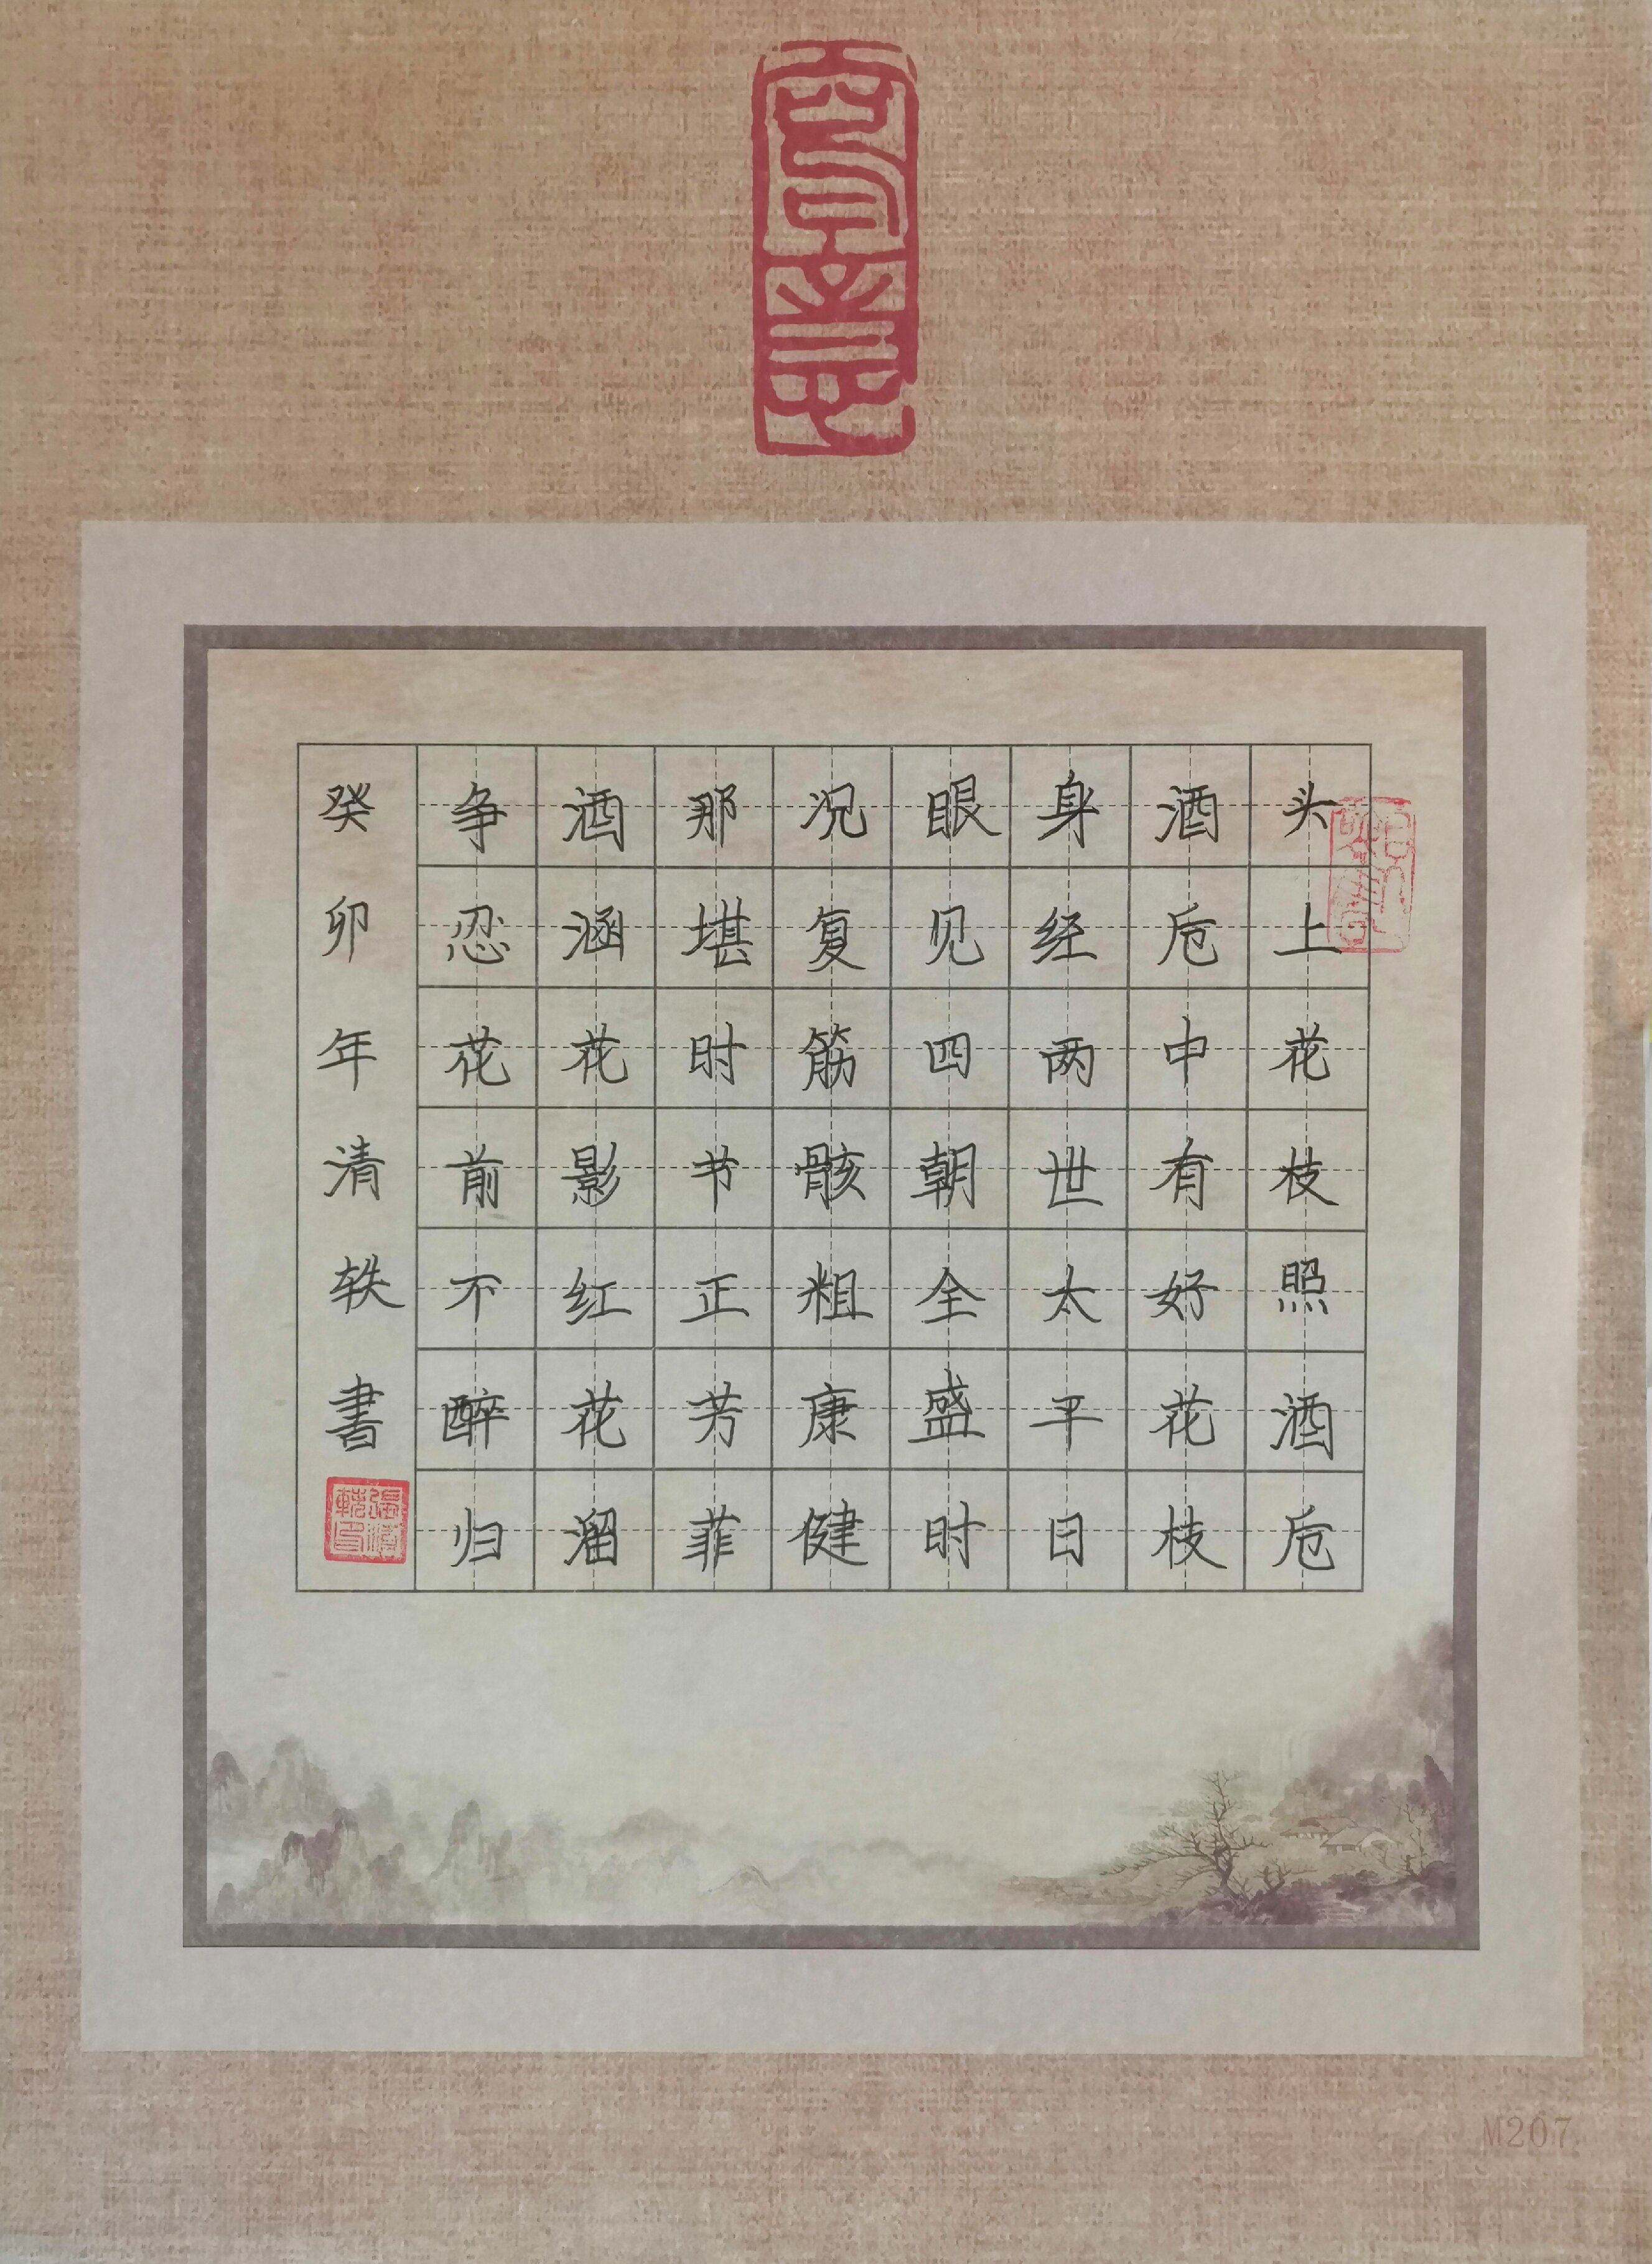 头上花枝照酒卮
酒卮中有好花枝
身经两世太平日
眼见四朝全盛时
况复筋骸粗康健
那堪时节正芳菲
酒涵花影红花溜
争忍花前不醉归
癸卯年清轶書
M207